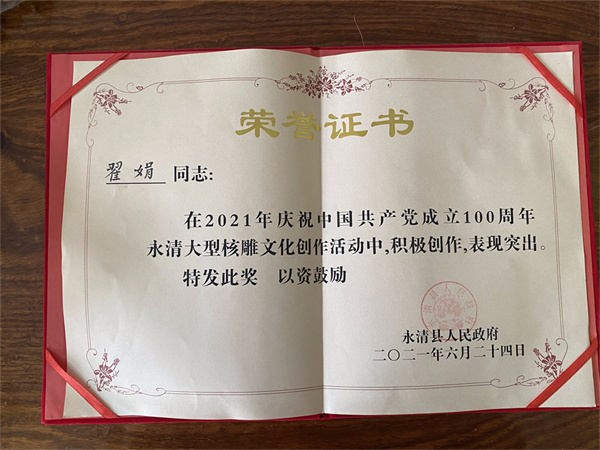 荣誉证书
翟娟 同志：
在2021年庆祝中国共产党成立100周年
永清大型核雕文化创作活动中,积极创作,表现突出。
特发此奖 以资鼓励
永清县人民政府
二〇二一年六月二十四日